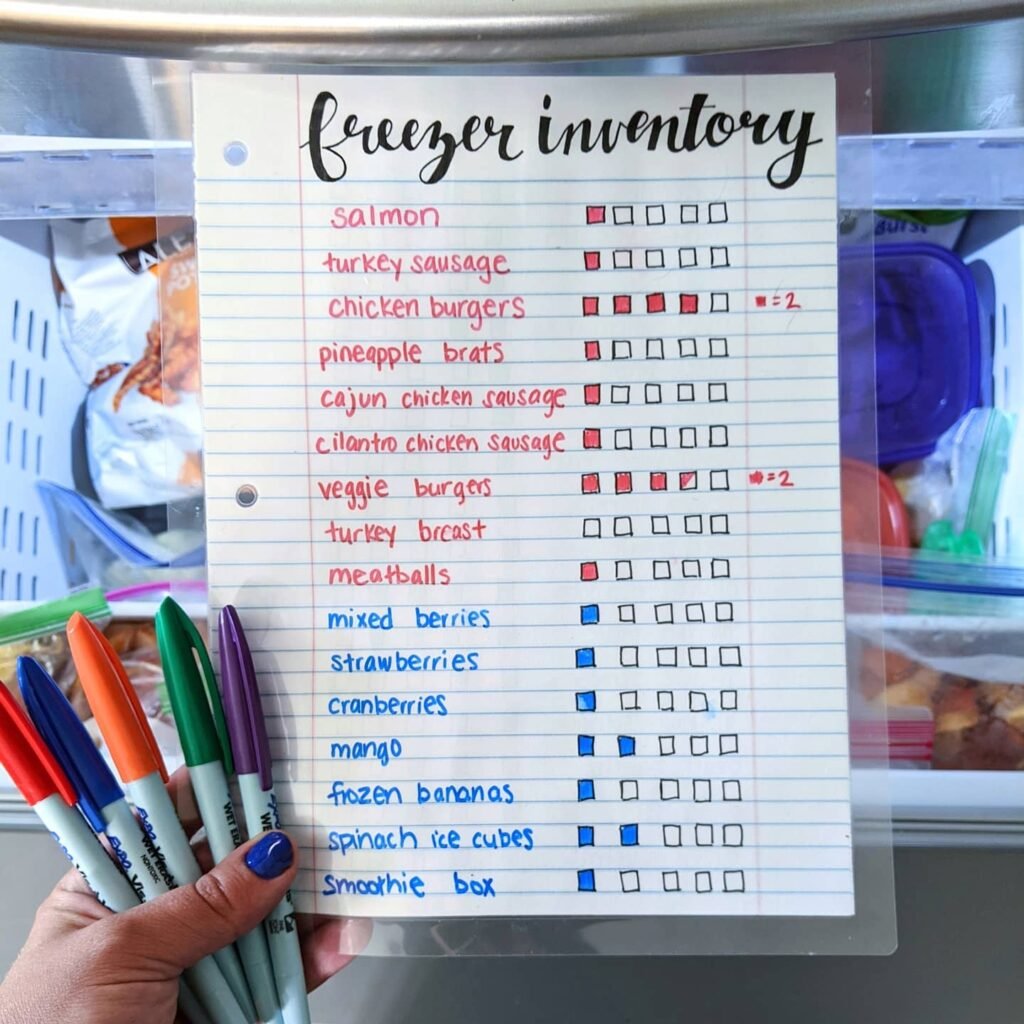 freezer inventory
salmon
turkey sausage
chicken burgers = 2
pineapple brats
cajun chicken sausage
cilantro chicken sausage
veggie burgers = 2
turkey breast
meatballs
mixed berries
strawberries
cranberries
mango
frozen bananas
spinach ice cubes
smoothie box
ALE
BURST
WET ERA
WE